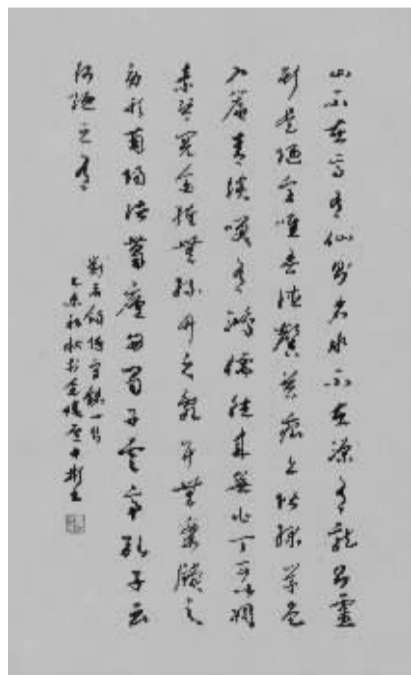 山不在高有仙則名水不在深有龍則靈
斯是陋室唯吾德馨苔痕上階綠草色
入簾青談笑有鴻儒往來無白丁可以調
素琴閱金經無絲竹之亂耳無案牘之
勞形南陽諸葛廬西蜀子雲亭孔子云
何陋之有
劉禹錫陋室銘一首
乙未初秋於金陵